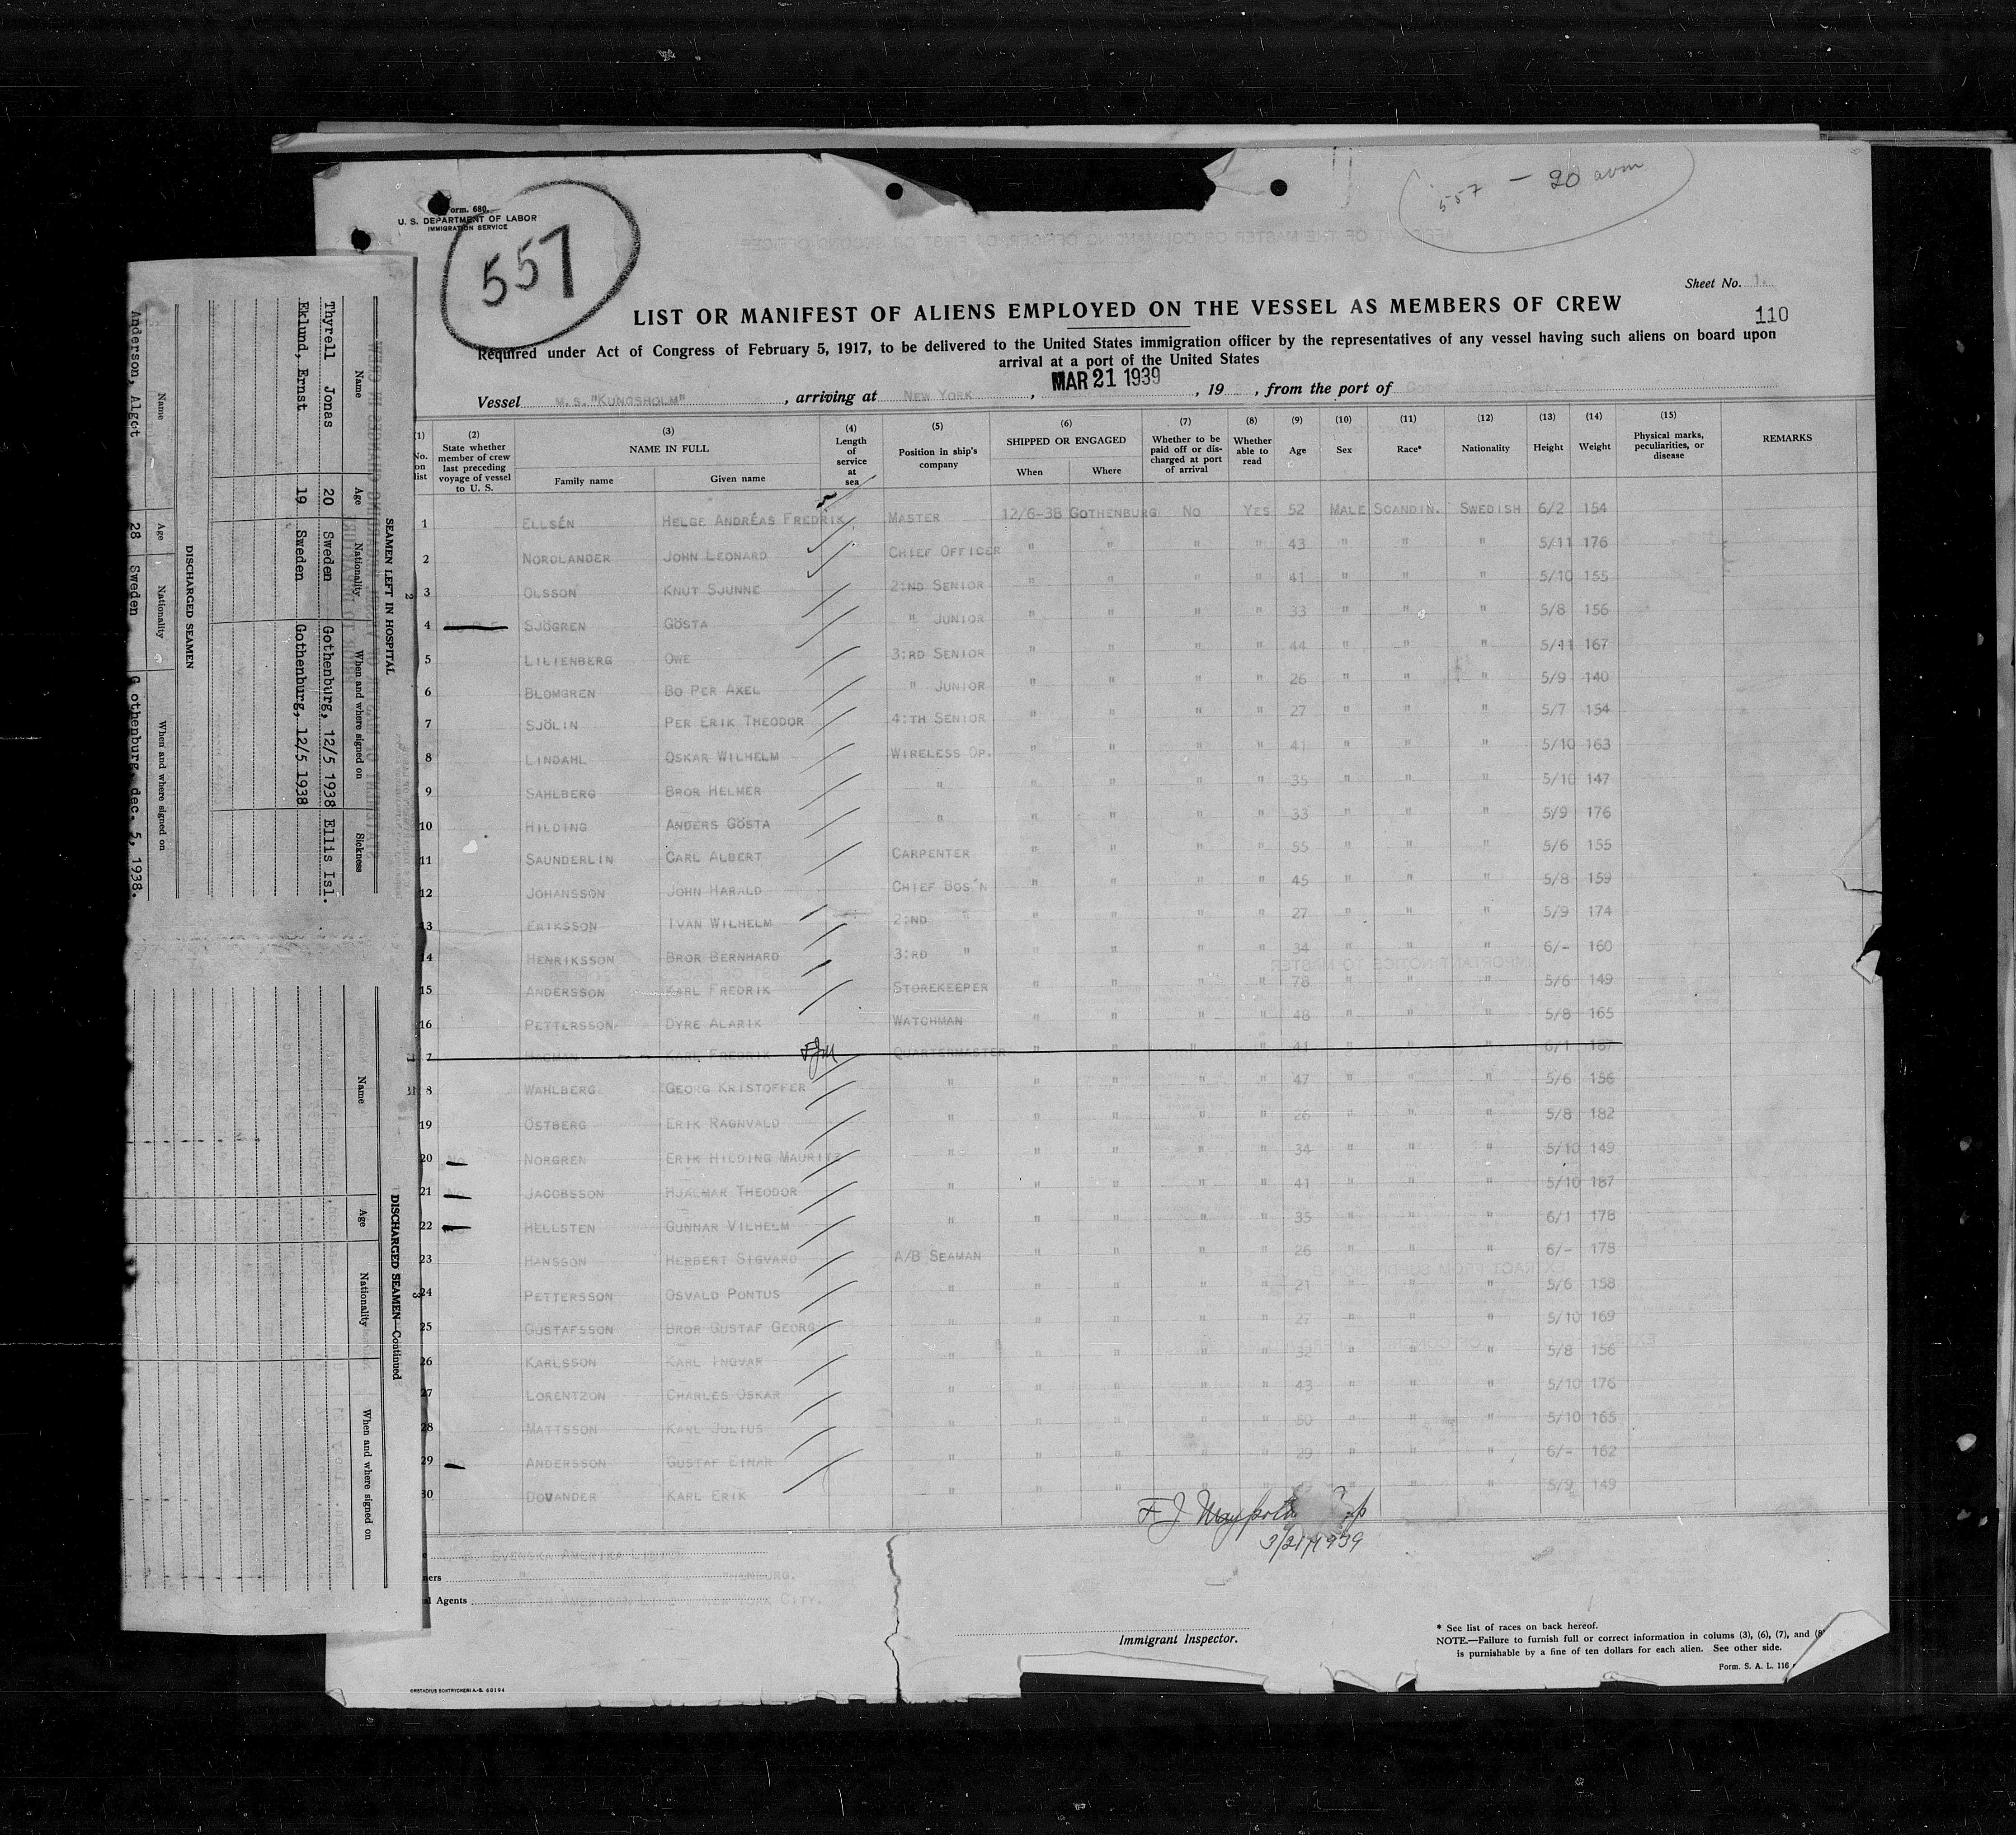 557 - 20
Form. 680.
U. S. DEPARTMENT OF LABOR
IMMIGRATION SERVICE
557
Sheet No. 1.
LIST OR MANIFEST OF ALIENS EMPLOYED ON THE VESSEL AS MEMBERS OF CREW
110
Required under Act of Congress of February 5, 1917, to be delivered to the United States immigration officer by the representatives of any vessel having such aliens on board upon
arrival at a port of the United States
Vessel M.S."KUNGSHOLM", arriving at NEW YORK, MAR 21 1939, 19 , from the port of
(1) No. on list (2) State whether member of crew last preceding voyage of vessel to U. S. (3) NAME IN FULL Family name Given name (4) Length of service at sea (5) Position in ship's company (6) SHIPPED OR ENGAGED When Where (7) Whether to be paid off or discharged at port of arrival (8) Whether able to read (9) Age (10) Sex (11) Race* (12) Nationality (13) Height (14) Weight (15) Physical marks, peculiarities, or disease REMARKS
1 ELLSÉN HELGE ANDRÉAS FREDRIK MASTER 12/6-38 GOTHENBURG NO YES 52 MALE SCANDIN. SWEDISH 6/2 154
2 NORDLANDER JOHN LEONARD CHIEF OFFICER " " " " 43 " " " 5/11 176
3 OLSSON KNUT SJUNNE 2:ND SENIOR " " " " 41 " " " 5/10 155
4 SJÖGREN GÖSTA " JUNIOR " " " " 33 " " " 5/8 156
5 LILIENBERG OWE 3:RD SENIOR " " " " 44 " " " 5/11 167
6 BLOMGREN BO PER AXEL " JUNIOR " " " " 26 " " " 5/9 140
7 SJÖLIN PER ERIK THEODOR 4:TH SENIOR " " " " 27 " " " 5/7 154
8 LINDAHL OSKAR WILHELM WIRELESS OP. " " " " 41 " " " 5/10 163
9 SAHLBERG BROR HELMER " " " " " 35 " " " 5/10 147
10 HILDING ANDERS GÖSTA " " " " " 33 " " " 5/9 176
11 SAUNDERLIN CARL ALBERT CARPENTER " " " " 55 " " " 5/6 155
12 JOHANSSON JOHN HARALD CHIEF BOS'N " " " " 45 " " " 5/8 159
13 ERIKSSON IVAN WILHELM 2:ND " " " " " 27 " " " 5/9 174
14 HENRIKSSON BROR BERNHARD 3:RD " " " " " 34 " " " 6/- 160
15 ANDERSSON KARL FREDRIK STOREKEEPER " " " " 78 " " " 5/6 149
16 PETTERSSON DYRE ALARIK WATCHMAN " " " " 48 " " " 5/8 165
17 HAGMAN KARL FREDRIK QUARTERMASTER " " " " 41 " " " 6/1 187
18 WAHLBERG GEORG KRISTOFFER " " " " " 47 " " " 5/6 156
19 ÖSTBERG ERIK RAGNVALD " " " " " 26 " " " 5/8 182
20 NO NORGREN ERIK HILDING MAURITZ " " " " " 34 " " " 5/10 149
21 JACOBSSON HJALMAR THEODOR " " " " " 41 " " " 5/10 187
22 NO HELLSTEN GUNNAR VILHELM " " " " " 35 " " " 6/1 178
23 HANSSON HERBERT SIGVARD A/B SEAMAN " " " " 26 " " " 6/- 178
24 PETTERSSON OSVALD PONTUS " " " " " 21 " " " 5/6 158
25 GUSTAFSSON BROR GUSTAF GEORG " " " " 27 " " " 5/10 169
26 KARLSSON KARL INGVAR " " " " " 32 " " " 5/8 156
27 LORENTZON CHARLES OSKAR " " " " " 43 " " " 5/10 176
28 MATTSSON KARL JULIUS " " " " " 50 " " " 5/10 165
29 ANDERSSON GUSTAF EINAR " " " " " 29 " " " 6/- 162
30 DOVANDER KARL ERIK " " " " " " " " 5/9 149
3/21/1939
SVENSKA AMERIKA
Agents
CITY.
Immigrant Inspector.
* See list of races on back hereof.
NOTE.—Failure to furnish full or correct information in colums (3), (6), (7), and (8)
is purnishable by a fine of ten dollars for each alien. See other side.
Form. S. A. L. 116
SEAMEN LEFT IN HOSPITAL
Name Age Nationality When and where signed on Sickness
Thyrell Jonas 20 Sweden Gothenburg, 12/5 1938 Ellis Isl.
Eklund, Ernst 19 Sweden Gothenburg, 12/5 1938
DISCHARGED SEAMEN
Name Age Nationality When and where signed on
Anderson, Algot 28 Sweden Gothenburg, dec. 5, 1938.
DISCHARGED SEAMEN—Continued
Name Age Nationality When and where signed on